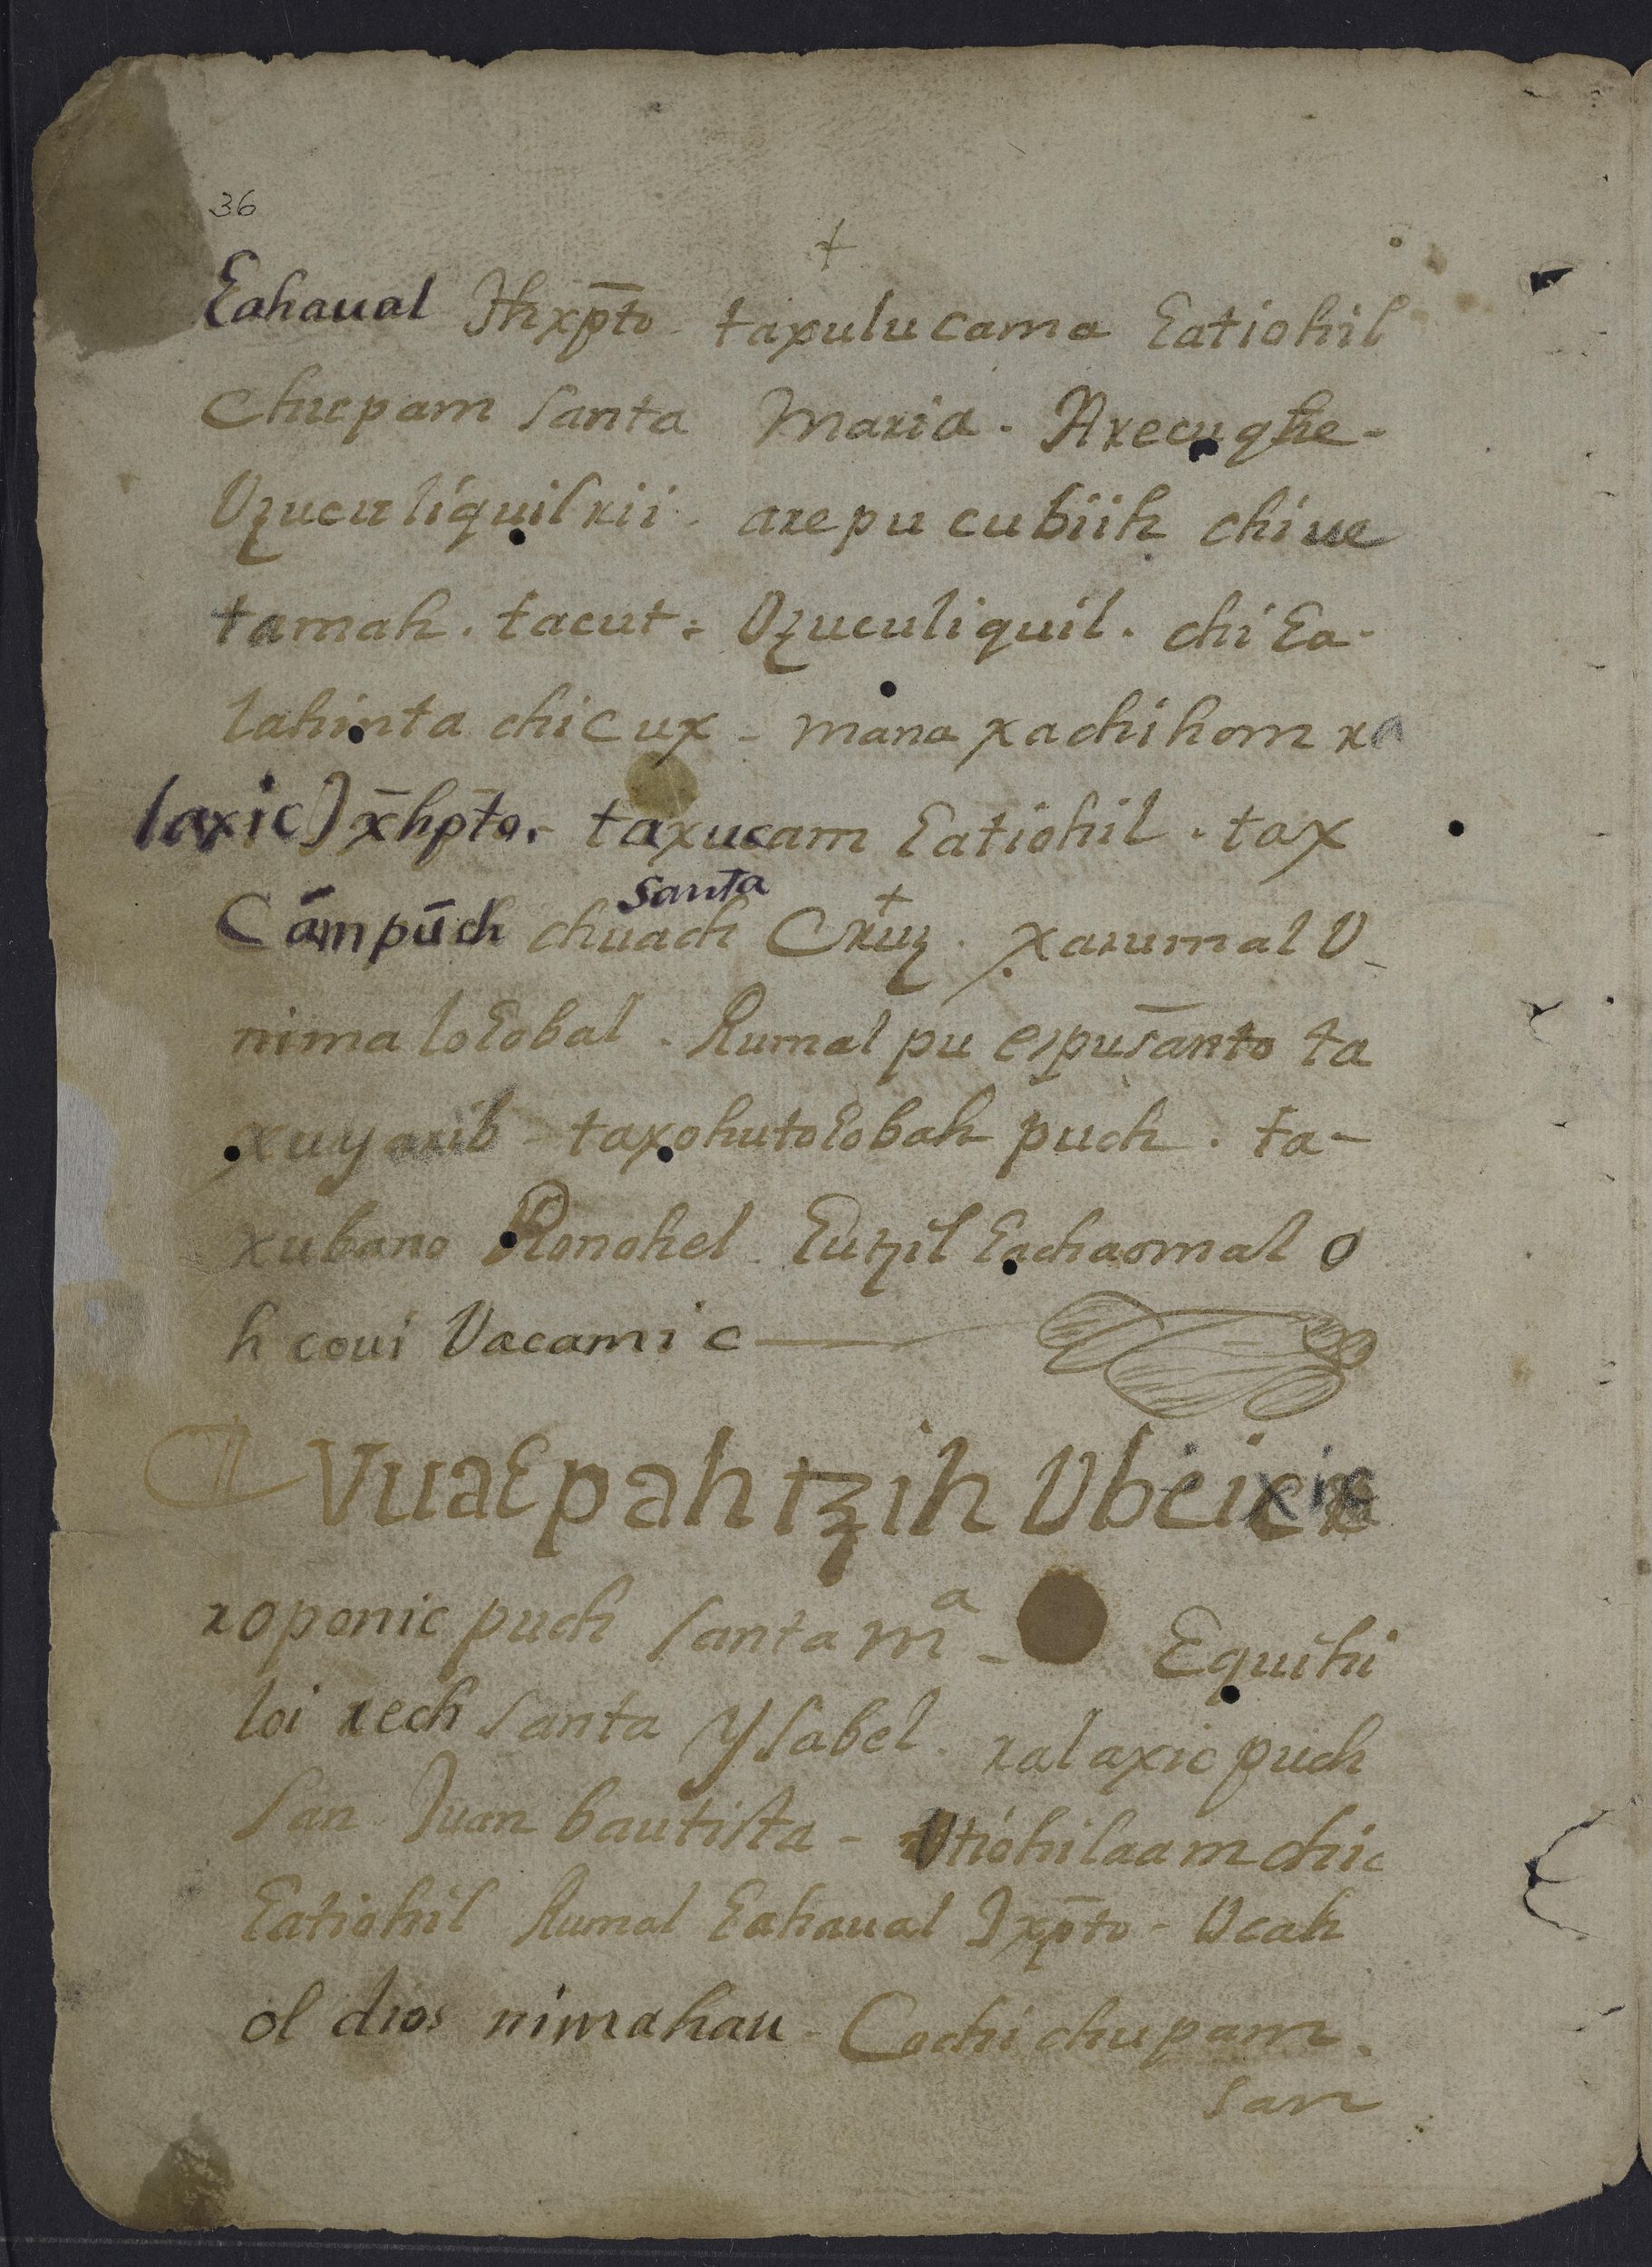 36
+
Ɛahaual Jhxp̄to taxulucama Ɛatiohil
Chupam santa Maria. Arecuqhe-
Vzuculiquil rii. arepu cubiih chiue
tamah. tacut: Vzuculiquil. chi Ɛa-
lahinta chi cux - mana xachihom ra
laxic) x̄hp̄to. taxucam Ɛatiohil. tax
santa +
Cāmpūch chuach Cruz. xarumal V_
nima loƐobal. Rumal pu espūsānto ta
xuyarib - taxohutoƐobah puch. ta-
xubano Ronohel Ɛutzil Ɛachaomal o
h coui Vacamic
VuaƐpah tzih Vbeixic
roponic puch santa mª - Equihi
loi rech santa Ysabel. ralaxic puch
san Juan bautista - Vtiohilaam chic
Ɛatiohil Rumal Ɛahaual Jxp̄to - Vcah
ol dios nimahau - Cochi chupam.
san